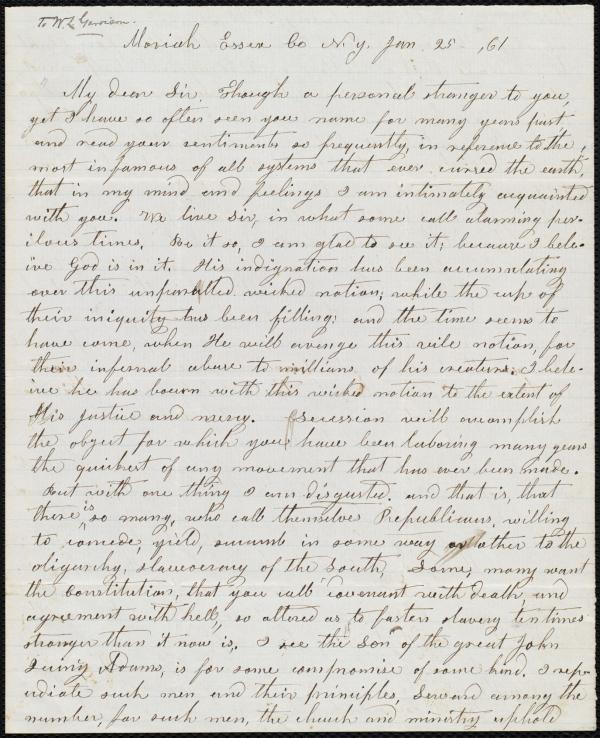 To W L Garrison.
Moriah Essex Co N.y. Jan. 25 - ,61
My dear Sir, Though a personal stranger to you,
yet I have so often seen you name for many years past
and read your sentiments so frequently, in reference to the
most infamous of all systems that ever cursed the earth,
that in my mind and feelings I am intimately acquainted
with you. We live Sir, in what some call alarming per-
ilous times. Be it so, I am glad to see it; because I bele-
ive God is in it. His indignation has been accumulating
over this unparalled wicked nation; while the cup of
their iniquity has been filling; and the time seems to
have come, when He will avenge this vile nation, for
their infernal abuse to millians of his creatures. I bele-
ive he has bourn with this wicked nation to the extent of
His justice and mercy. Secession will accomplish
the object for which you have been laboring many years
the quickest of any movement that has ever been made.
But with one thing I am disgusted. and that is, that
there is so many, who call themselve Republicans, willing
to concede, yield, succumb in some way or other to the
oligarchy, slaveocracy of the South, Some, many want
the Constitution, that you call "covenant with death, and
agreement with hell, so altered as to fasten slavery ten times
stronger than it now is. I see the Son of the great John
Quincy Adams, is for some compromise of some kind. I rep-
udiate such men and their principles, Seward among the
number, for such men, the church and ministry uphold